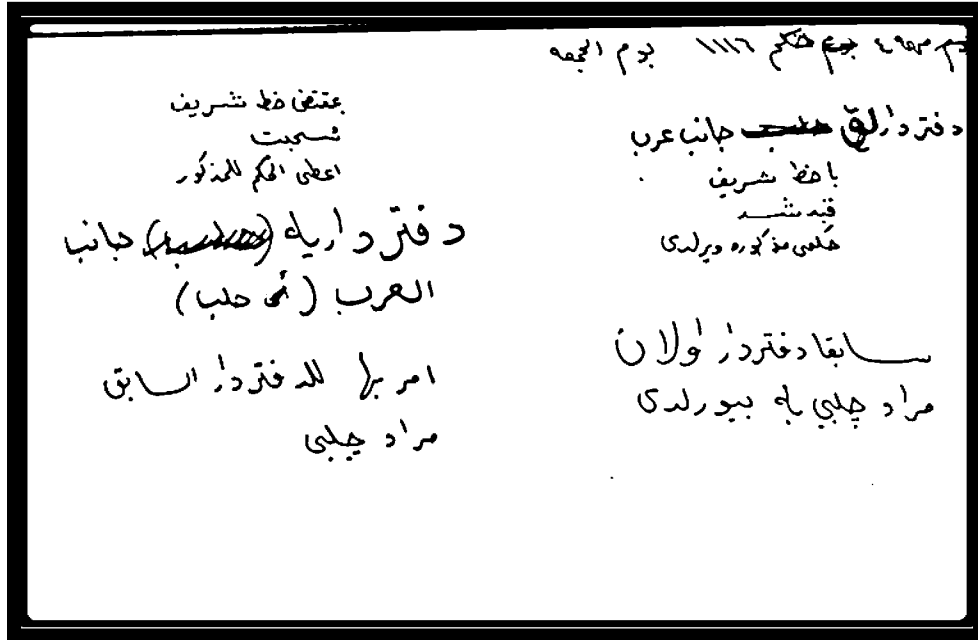 حكم ١١١٦ يوم الجمعه
دفتردارلق جانب عرب
با خط شريف
قيد شد
حكمى مذكوره ويرلدى
سابقا دفتردار اولان
مراد چلبي يه بيورلدى
بمقتضى خط شريف
سجلت
اعطى الحكم للمذكور
دفتردارية جانب
العرب (أى حلب)
امر بها للدفتردار السابق
مراد چلبى